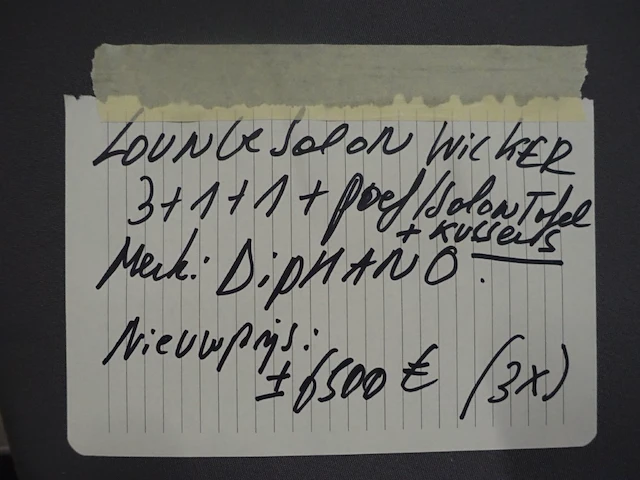 LOUNGE SALON WICKER
3+1+1+ poef/SalonTafel
+ KUSSENS
Merk: DIPHANO.
Nieuwprijs:
± 6500 € (3x)